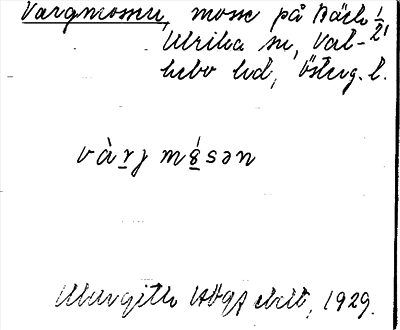 Vargmossen, mosse på Bäck 1/21
Ulrika sn, Val-
kebo hd, Österg. l.
vàrj mósən
Margith Högfeldt, 1929.